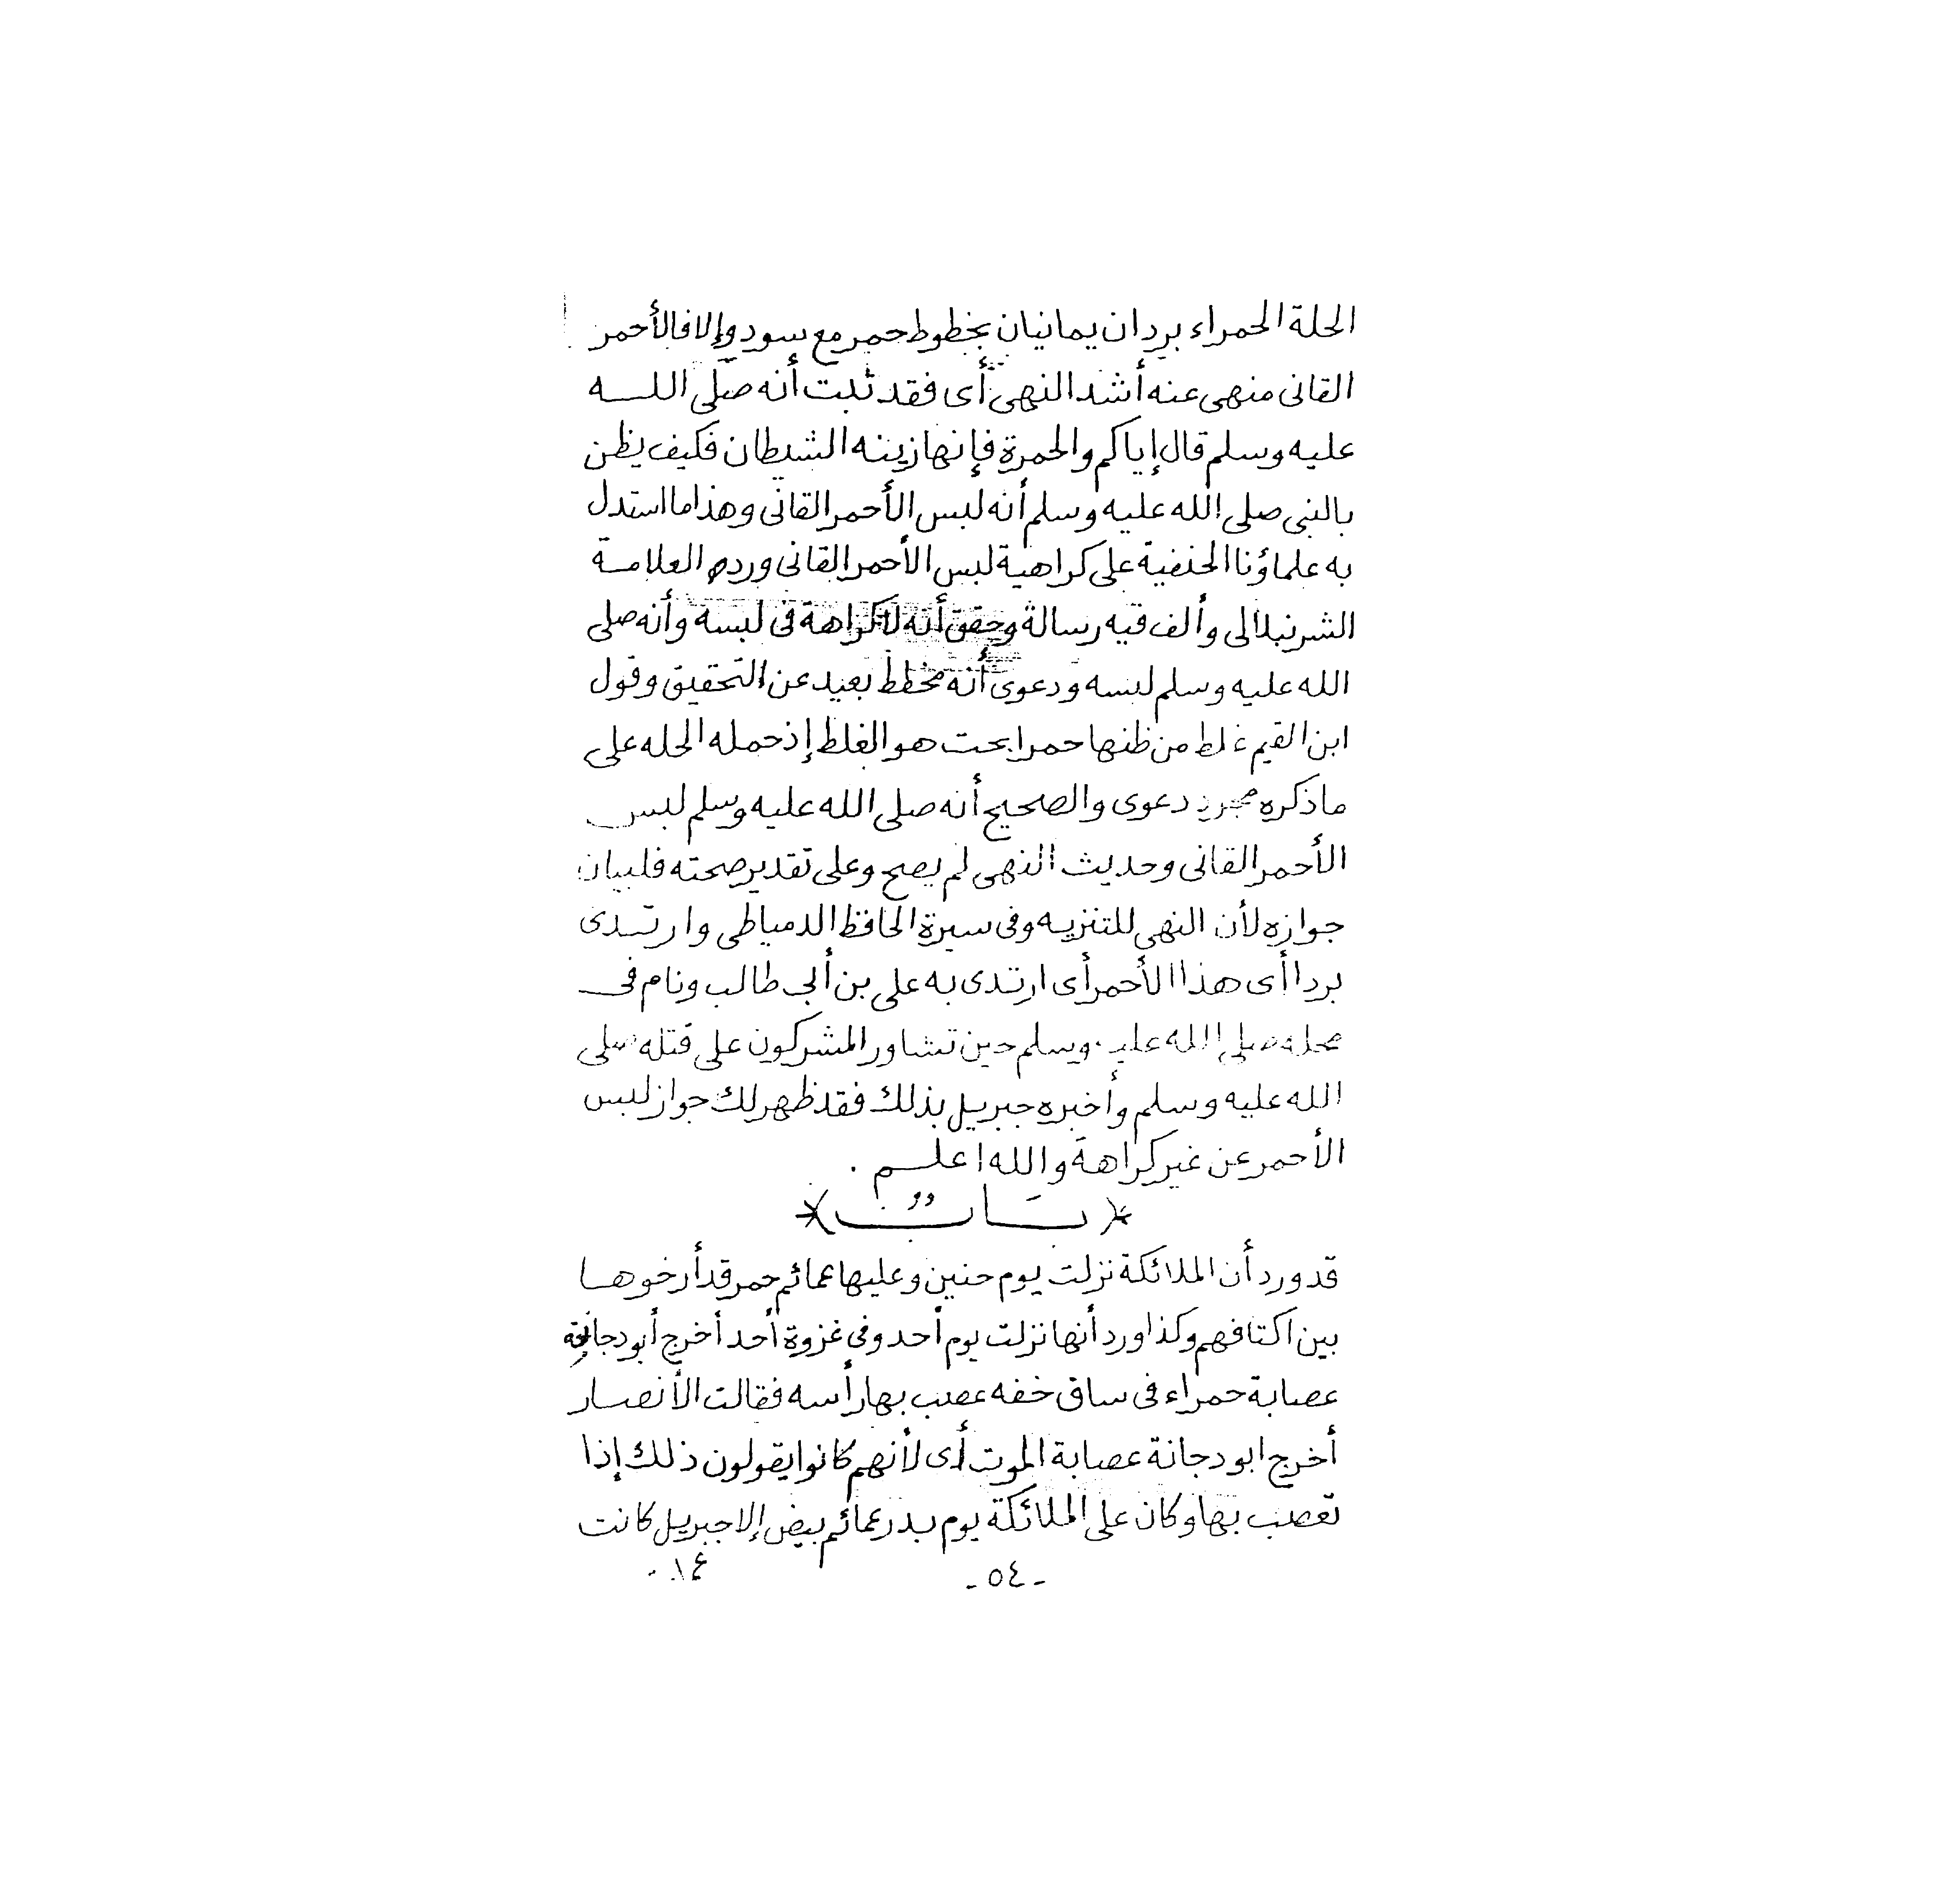 الحلة الحمراء بردان يمانيان بخطوط حمر مع سود وإلا فالأحمر
القانى منهى عنه أشد النهى أى فقد ثبت أنه صلى اللـــه
عليه وسلم قال إياكم والحمرة فإنها زينه الشيطان فكيف يظن
بالنبى صلى الله عليه وسلم أنه لبس الأحمر القانى وهذا ما استدل
به علماؤنا الحنفية على كراهية لبس الأحمر القانى ورده العلامـة
الشرنبلالى وألف فيه رسالة وحقق أنه لا كراهة فى لبسه وأنه صلى
الله عليه وسلم لبسه ودعوى أنه مخطط بعيد عن التحقيق وقول
ابن القيم غلط من ظنها حمرا بحت هو الغلط إذ حمله الحله على
ما ذكره مجرد دعوى والصحيح أنه صلى الله عليه وسلم لبس
الأحمر القانى وحديث النهى لم يصح وعلى تقدير صحته فلبيان
جوازه لأن النهى للتنزيه وفى سيرة الحافظ الدمياطى وارتـدى
بردا أى هذا الأحمر أى ارتدى به على بن أبى طالب ونام فى
محله صلى الله عليه وسلم حين تشاور المشركون على قتله صلى
الله عليه وسلم وأخبره جبريل بذلك فقد ظهر لك جواز لبس
الأحمر عن غير كراهة والله اعلـــم .
*( بَـــابٌ )*
قد ورد أن الملائكة نزلت يوم حنين وعليها عمائم حمر قد أرخوهـا
بين اكتافهم وكذا ورد أنها نزلت يوم أحد وفى غزوة أحد أخرج أبو دجانة
عصابة حمراء فى ساق خفه عصب بها رأسه فقالت الأنصـار
أخرج ابو دجانة عصابة الموت أى لأنهم كانوا يقولون ذلك إذا
تعصب بها وكان على الملائكة يوم بدر عمائم بيض إلا جبريل كانت
- ٥٤ -